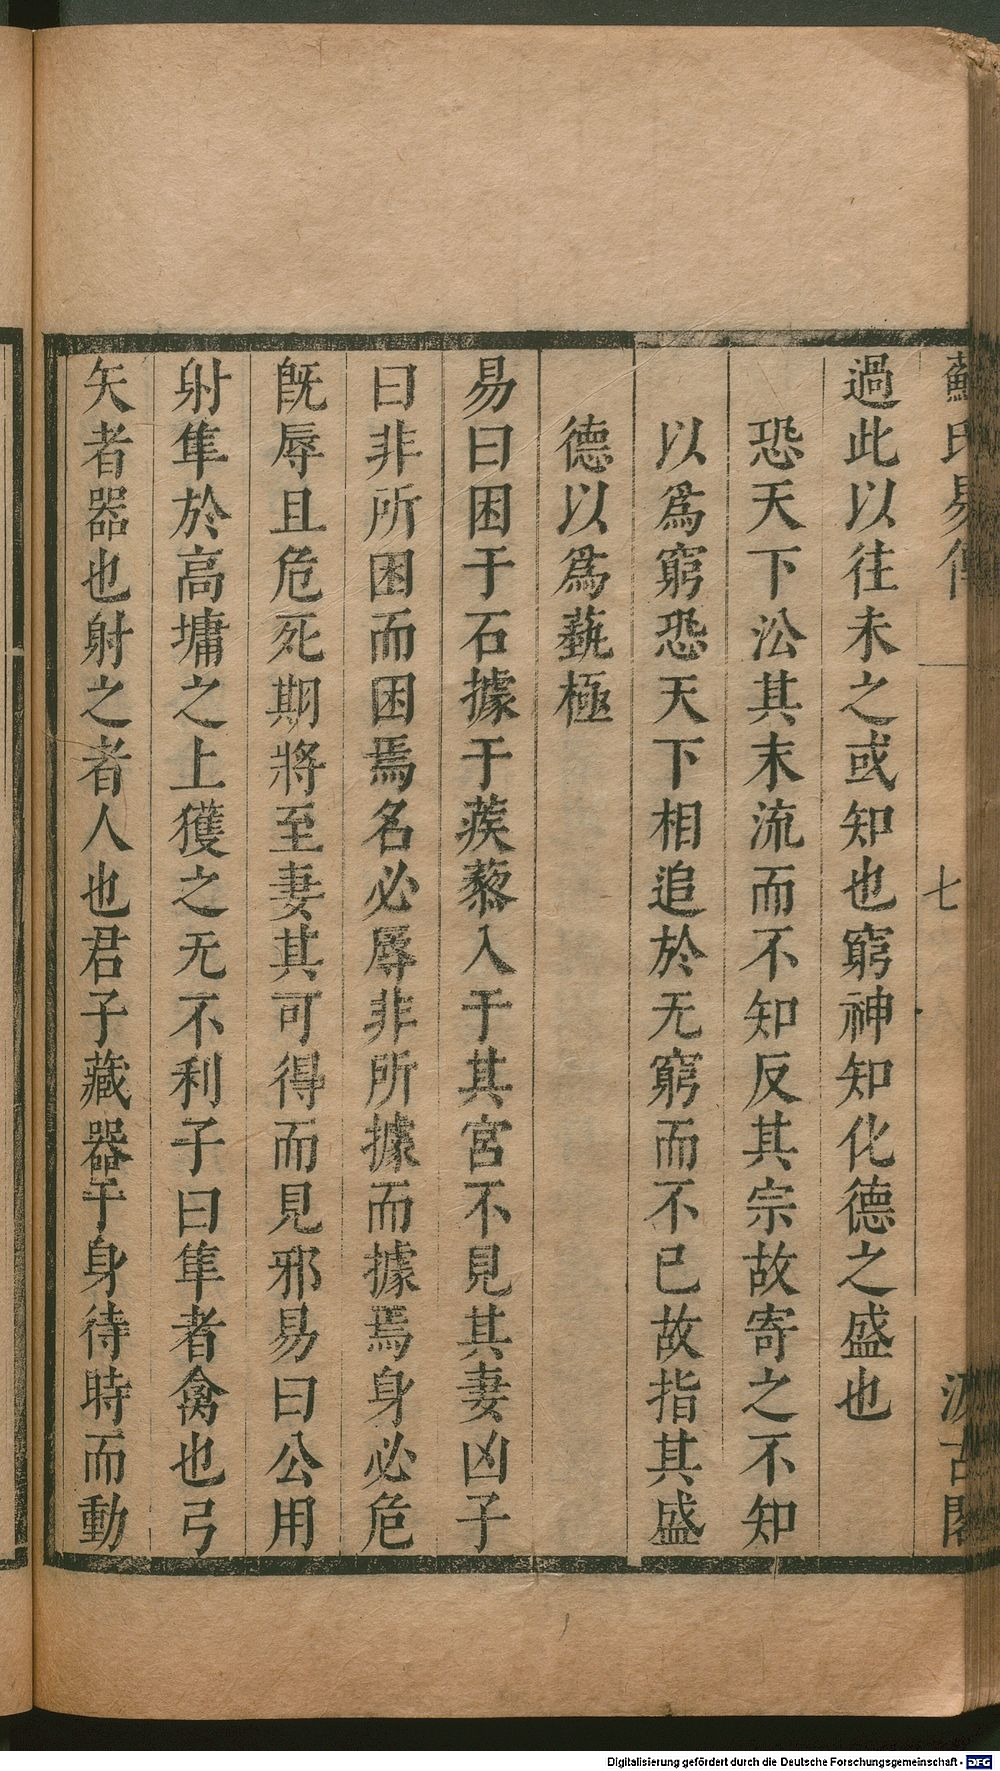 蘇氏易傳
七
汲古閣
過此以往未之或知也窮神知化德之盛也
恐天下沿其末流而不知反其宗故寄之不知
以爲窮恐天下相追於无窮而不已故指其盛
德以爲蓺極
易曰困于石據于蒺藜入于其宮不見其妻凶子
曰非所困而困焉名必辱非所據而據焉身必危
旣辱且危死期將至妻其可得而見邪易曰公用
射隼於高墉之上獲之无不利子曰隼者禽也弓
矢者器也射之者人也君子藏器于身待時而動
Digitalisierung gefördert durch die Deutsche Forschungsgemeinschaft - DFG